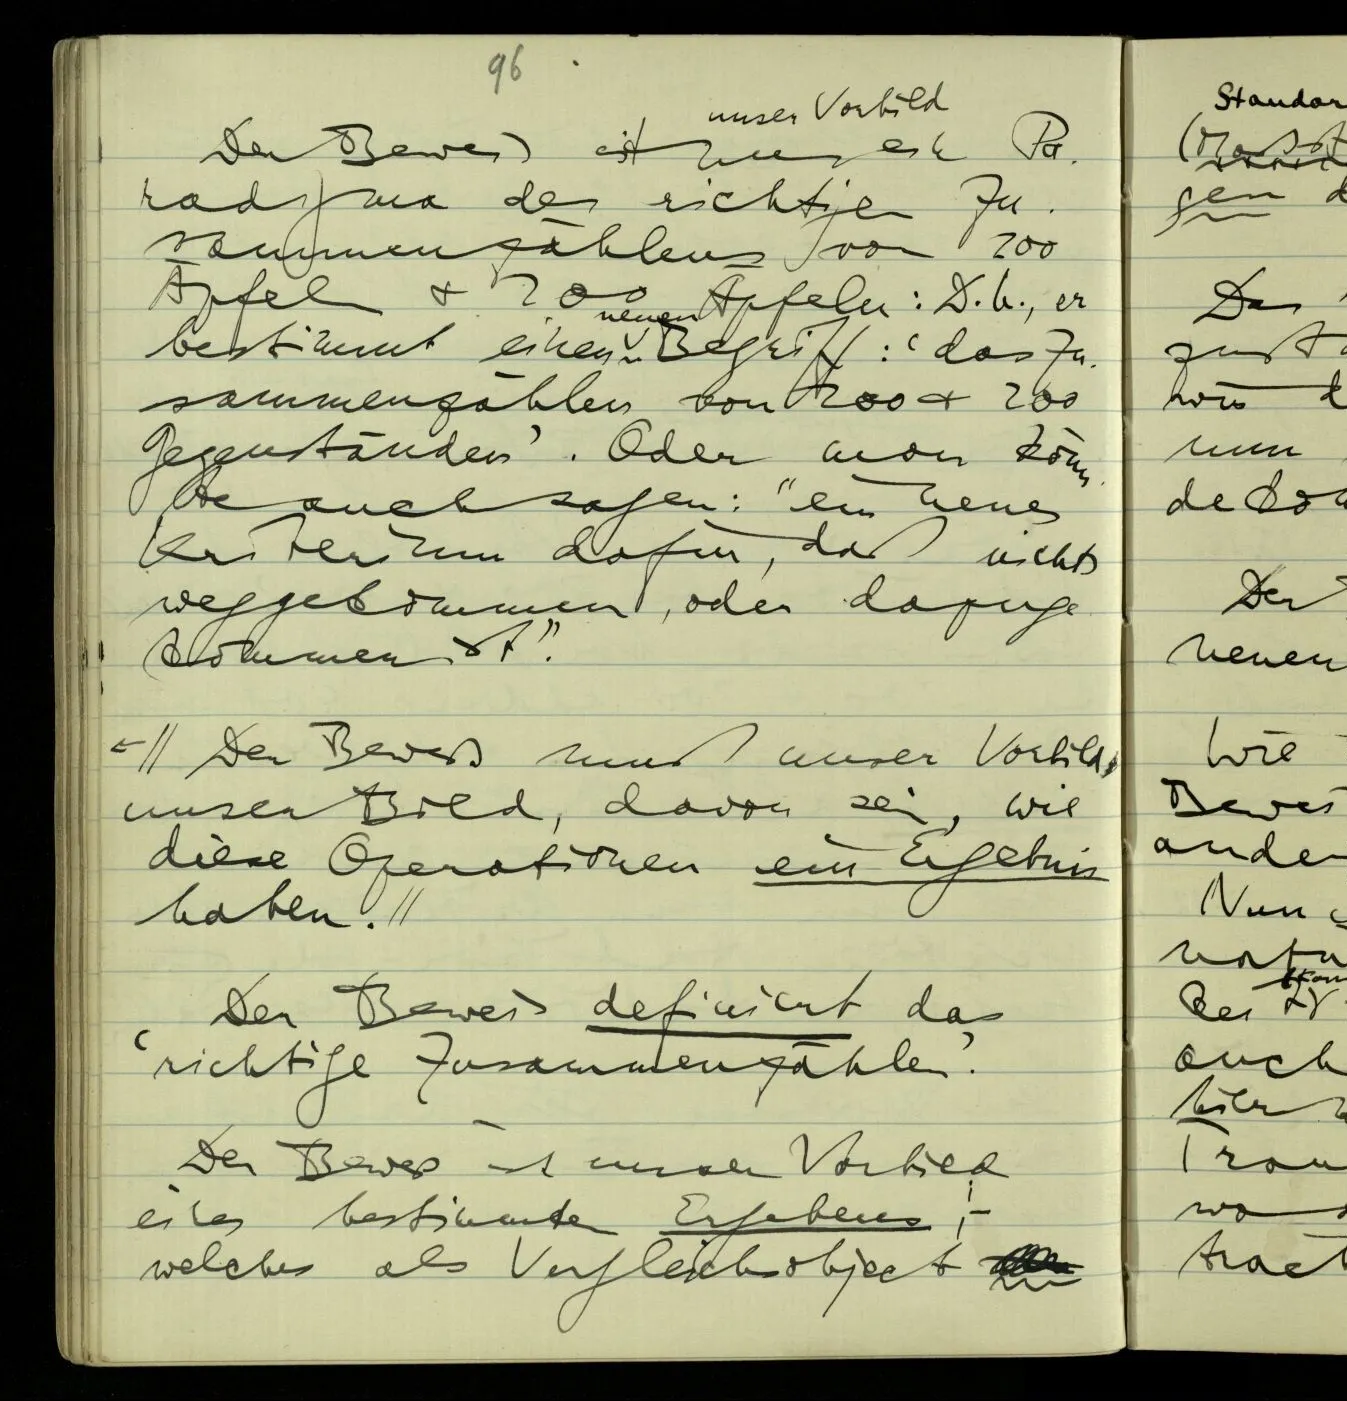 96
unser Vorbild
Der Beweis ist nun ein Pa-
radigma des richtigen Zu-
sammenzählens von 200
Äpfeln & 200 Äpfeln: D.h., er
neuen
bestimmt einen Begriff: ‘das Zu-
sammenzählen von 200 & 200
Gegenständen’. Oder man könn-
te auch sagen: “ein neues
Kriterium dafür, daß nichts
weggekommen, oder dazuge
kommen ist”.
// Der Beweis muß unser Vorbild,
unser Bild, davon sein, wie
diese Operationen ein Ergebnis
haben. //
Der Beweis definiert das
‘richtige Zusammenzählen’.
Der Beweis ist unser Vorbild
eines bestimmten Ergebens;
welches als Vergleichsobject
Standar
gen d
Das
wie d
nun
de kon
Der
neuen
Wie
Bewei
ande
Nun
natu
bei
auch
hier
Tran
tract